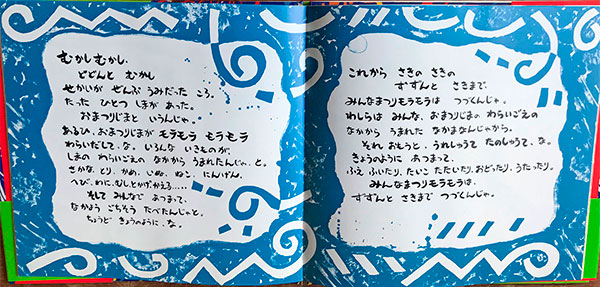 むかしむかし、
どどんと むかし
せかいが ぜんぶ うみだった ころ、
たった ひとつ しまが あった。
おまつりじまと いうんじゃ。
あるひ、おまつりじまが モラモラ モラモラ
わらいだして、な。いろんな いきものが、
しまの わらいごえの なかから うまれたんじゃ、と。
さかな、とり、かめ、いぬ、ねこ、にんげん、
へび、わに、むし、とかげ、かえる……
そして みんなで あつまって、
なかよう ごちそう たべたんじゃと。
ちょうど きょうのように、な。
これから さきの さきの
すずんと さきまで、
みんなまつりモラモラは つづくんじゃ。
わしらは みんな、おまつりじまの わらいごえの
なかから うまれた なかまなんじゃから。
それ おもうと、うれしゅうて たのしゅうて、な。
きょうのように あつまって、
ふえ ふいたり、たいこ たたいたり、おどったり、うたったり。
みんなまつりモラモラは、
すずんと さきまで つづくんじゃ。